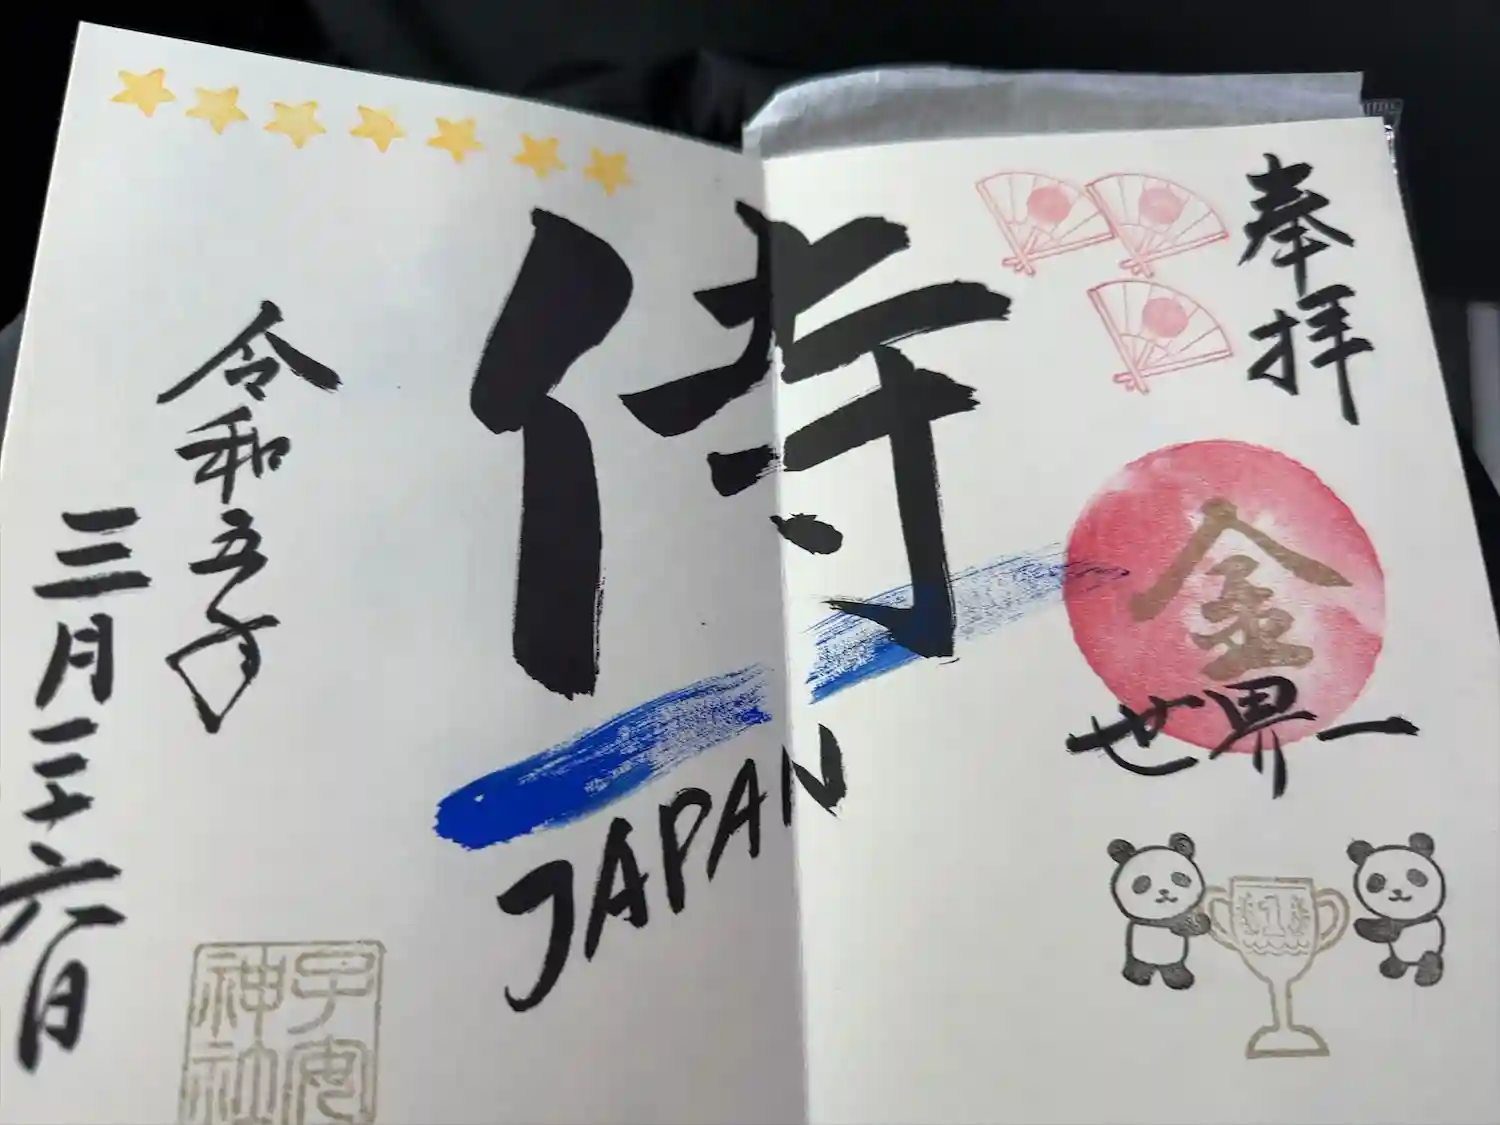 奉拝
金
世界一
1
侍
JAPAN
令和五年
三月二十六日
子安
神社